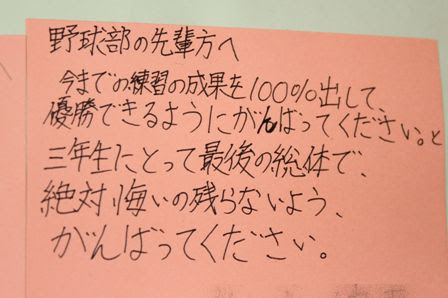 野球部の先輩方へ
今までの練習の成果を100%出して、
優勝できるようにがんばってください。と
三年生にとって最後の総体で、
絶対悔いの残らないよう、
がんばってください。